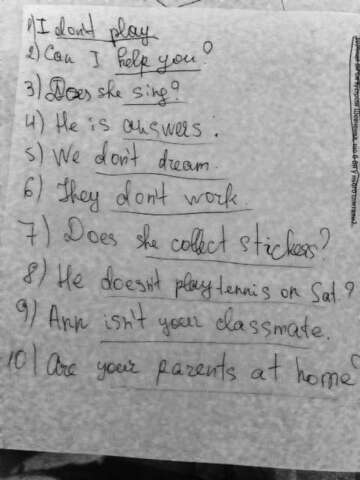 1) I don't play
2) Can I help you?
3) Does she sing?
4) He is answers.
5) We don't dream.
6) They don't work.
7) Does she collect stickers?
8) He doesn't play tennis on Sat.?
9) Ann isn't your classmate.
10) Are your parents at home?